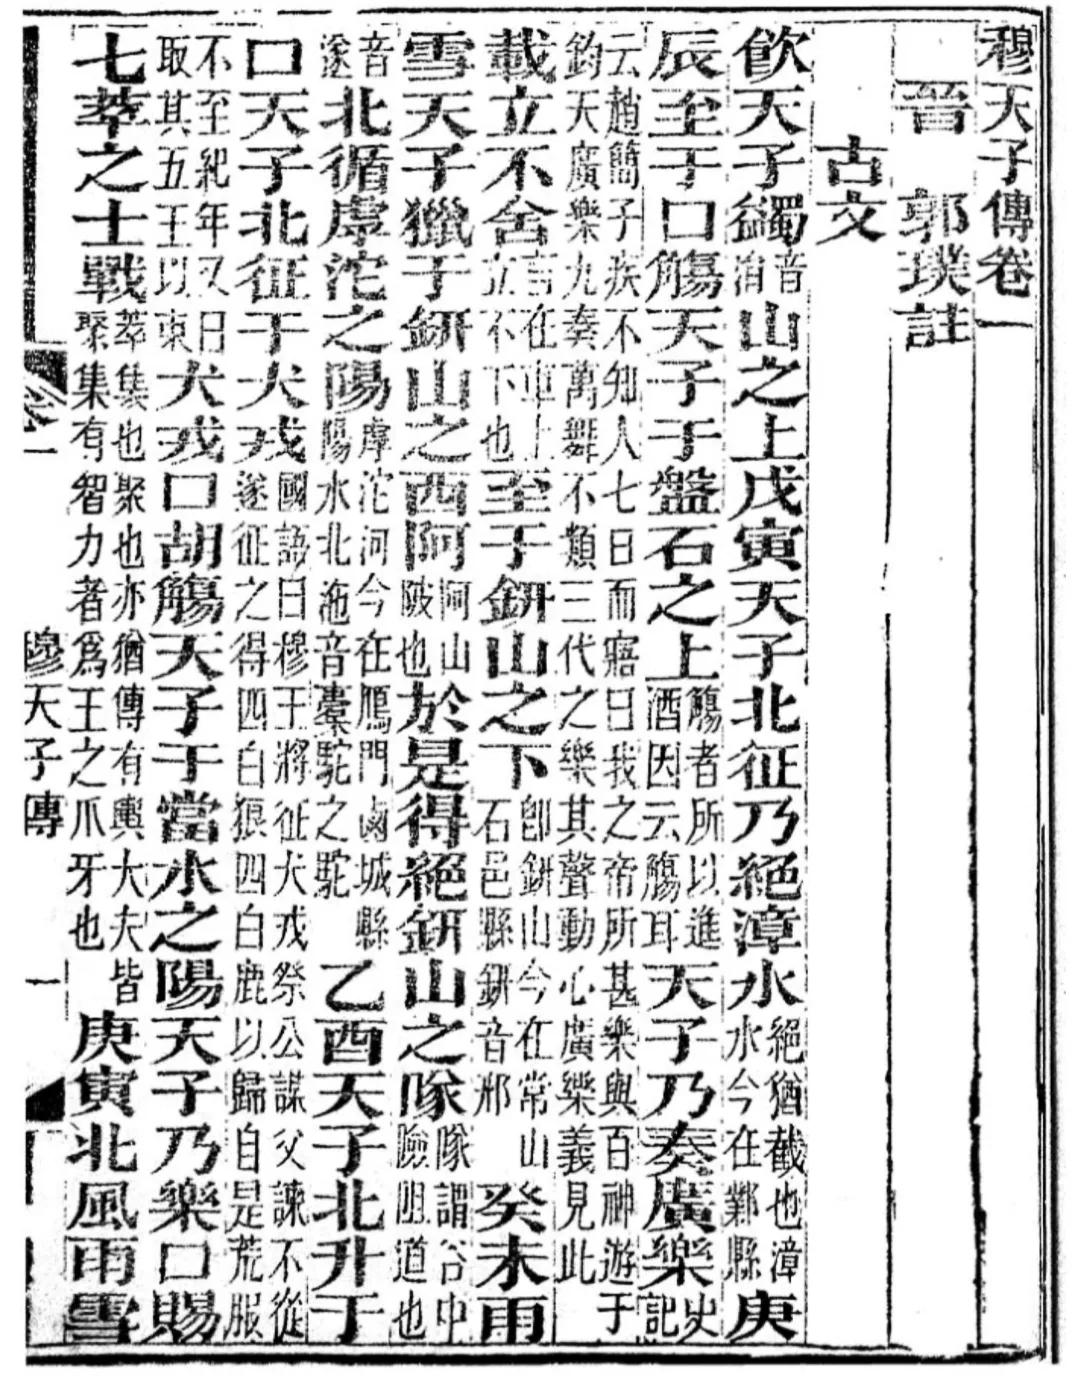 穆天子傳卷一
晉 郭璞註
古文
飲天子蠲音涓山之上戊寅天子北征乃絕漳水絕猶截也漳水今在鄴縣庚
辰至于口觴天子于盤石之上觴者所以進酒因云觴耳天子乃奏廣樂史記
云趙簡子疾不知人七日而寤曰我之帝所甚樂與百神遊于鈞天廣樂九奏萬舞不類三代之樂其聲動心廣樂義見此
載立不舍言在車上立不下也至于鈃山之下卽鈃山今在常山石邑縣鈃音邢癸未雨
雪天子獵于鈃山之西阿阿山陂也於是得絕鈃山之隊隊謂谷中險阻道也
音遂北循虖沱之陽虖沱河今在鴈門鹵城縣陽水北沲音橐駝之駝乙酉天子北升于
口天子北征于犬戎國語曰穆王將征犬戎祭公謀父諫不從遂征之得四白狼四白鹿以歸自是荒服
不至紀年又曰取其五王以東犬戎口胡觴天子于當水之陽天子乃樂口賜
七萃之士戰萃集也聚也亦猶傳有輿大夫皆聚集有智力者爲王之爪牙也庚寅北風雨雪
卷一 穆天子傳 一